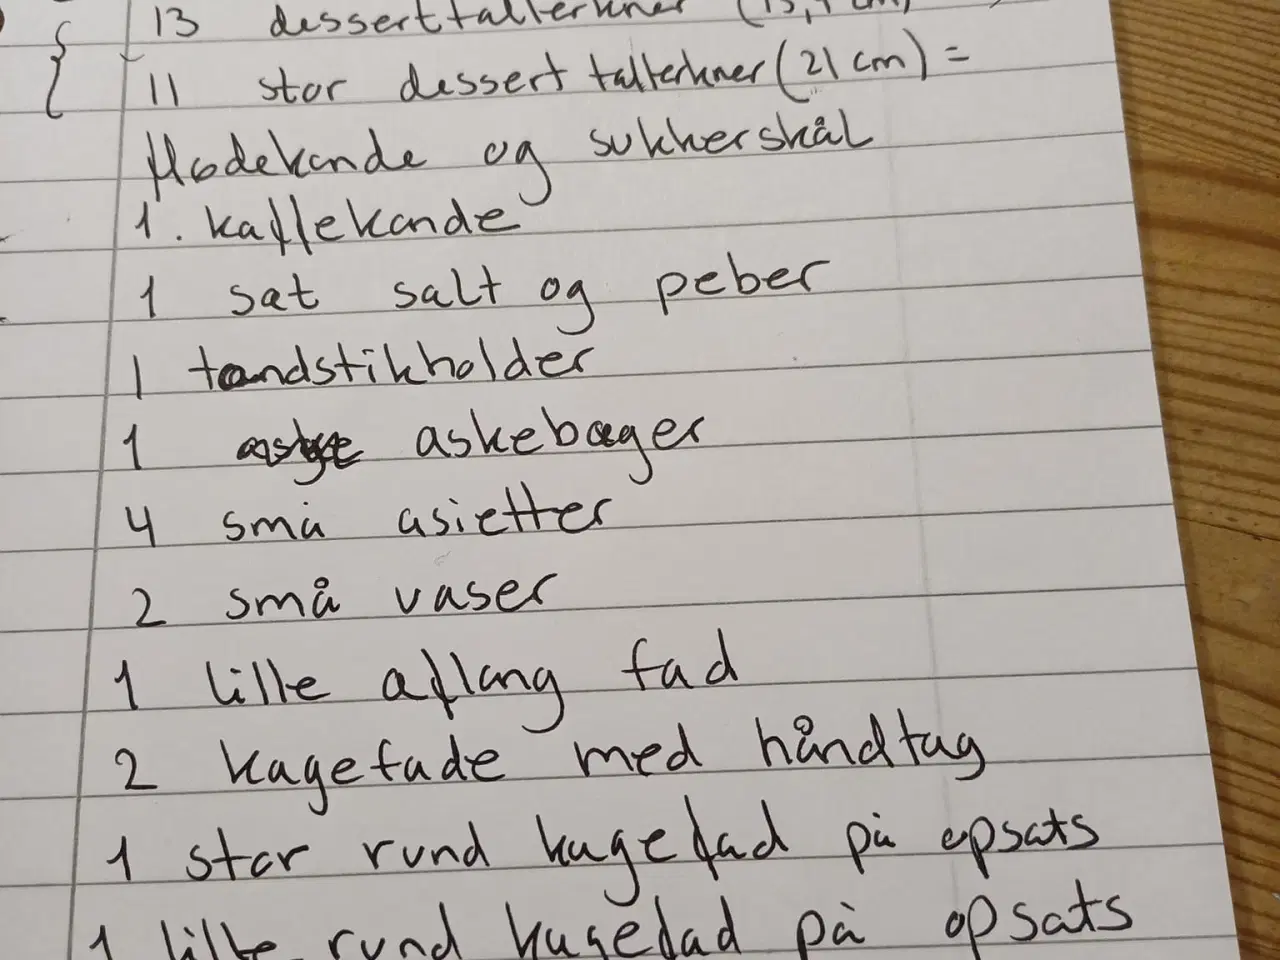 13 desserttallerkner
11 stor dessert tallerkner (21 cm) =
flødekande og sukkerskål
1. kaffekande
1 sat salt og peber
1 tandstikholder
1 askebæger
4 små asietter
2 små vaser
1 lille aflang fad
2 kagefade med håndtag
1 stor rund kagefad på opsats
1 lille rund kagefad på opsats